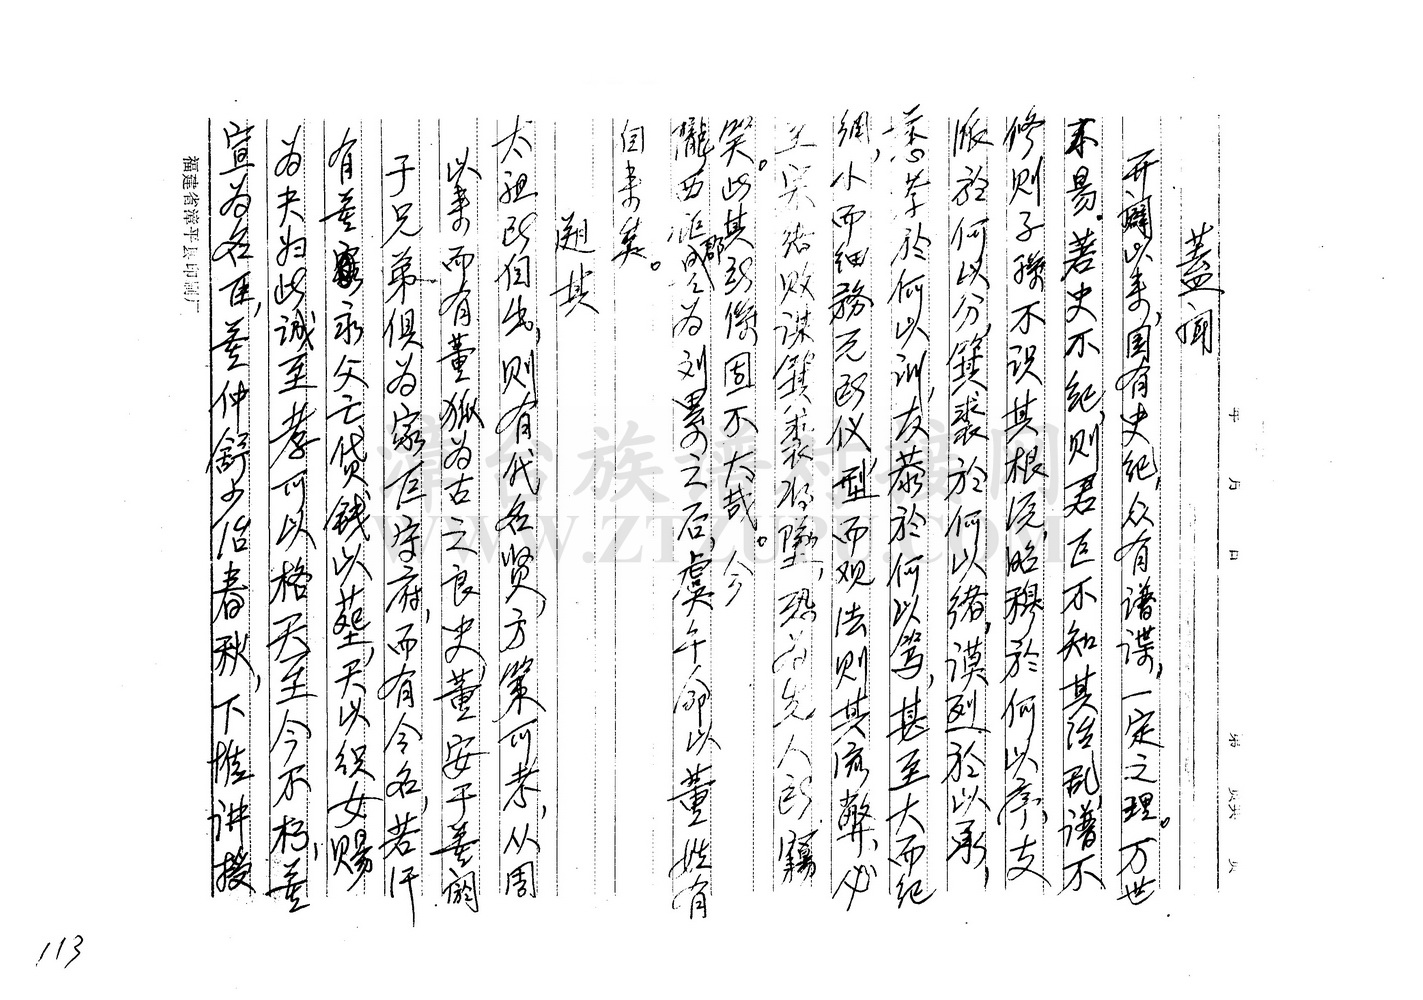 盖闻
开辟以来，国有史纪，众有谱谍，一定之理。万世
不易。若史不纪，则君臣不知其治乱，谱不
修则子孙不识其根源，昭穆於何以序，支
派於何以分，箕裘於何以绪，谟烈於以承，
孝於何以训，友恭於何以笃，甚至大而纪
纲，小而细务无所仪型而观法则其流弊，必
至宗绪败谋箕裘将坠，恐为先人所窃
笑。此其所系固不大哉。今
陇西郡为刘累之后，虞午命以董姓有
自来矣。
溯其
太祖所自出，则有代名贤，方策可考，从周
以来而有董狐为古之良史，董安于善阏
于兄弟俱为家臣守府，而有令名，若汗
有董永父亡贷钱以葬，天以织女赐
为夫妇此诚至孝可以格天至今不朽，董
宣为名臣，董仲舒少治春秋，下帷讲授
年 月 日 第 页共 页
福建省漳平县印刷厂
漳台族谱对接网
WWW.ZTZUPU.COM
113